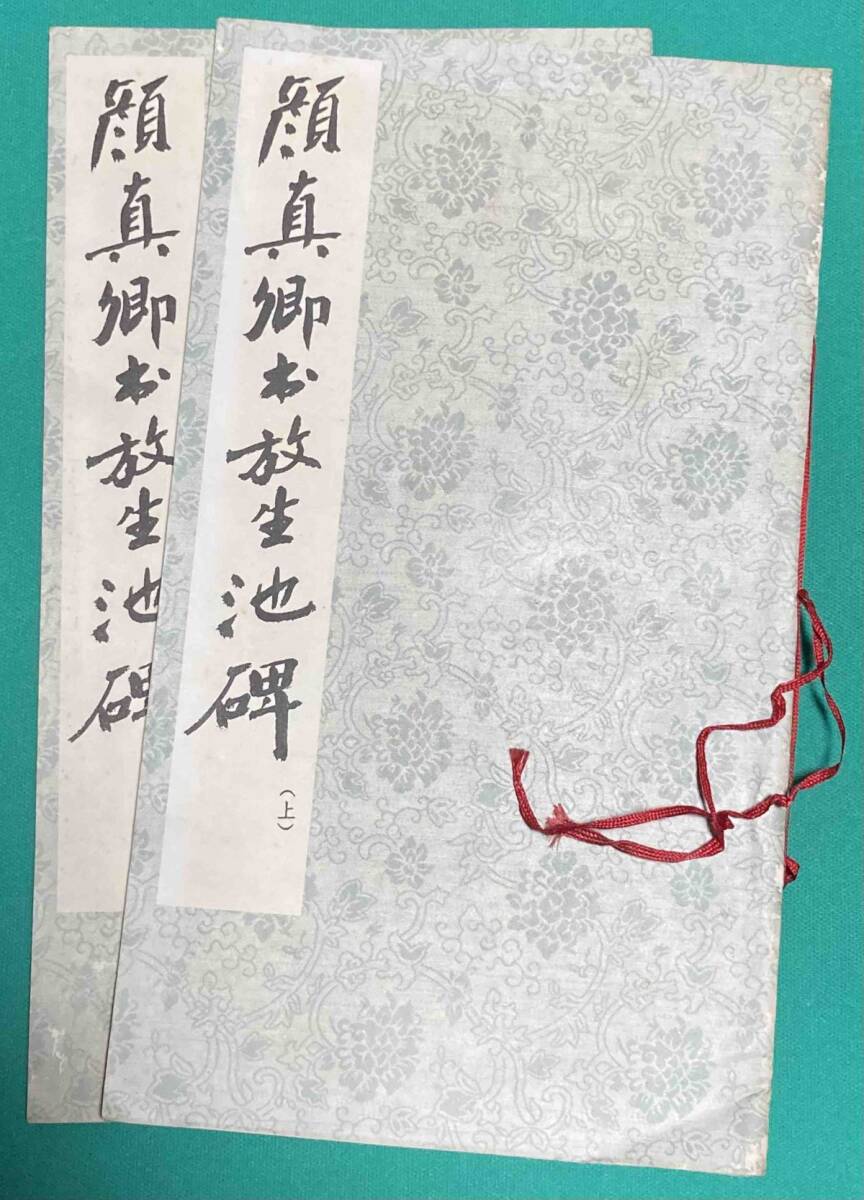 顔真卿书放生池碑
(上)
顔真卿书放生池碑